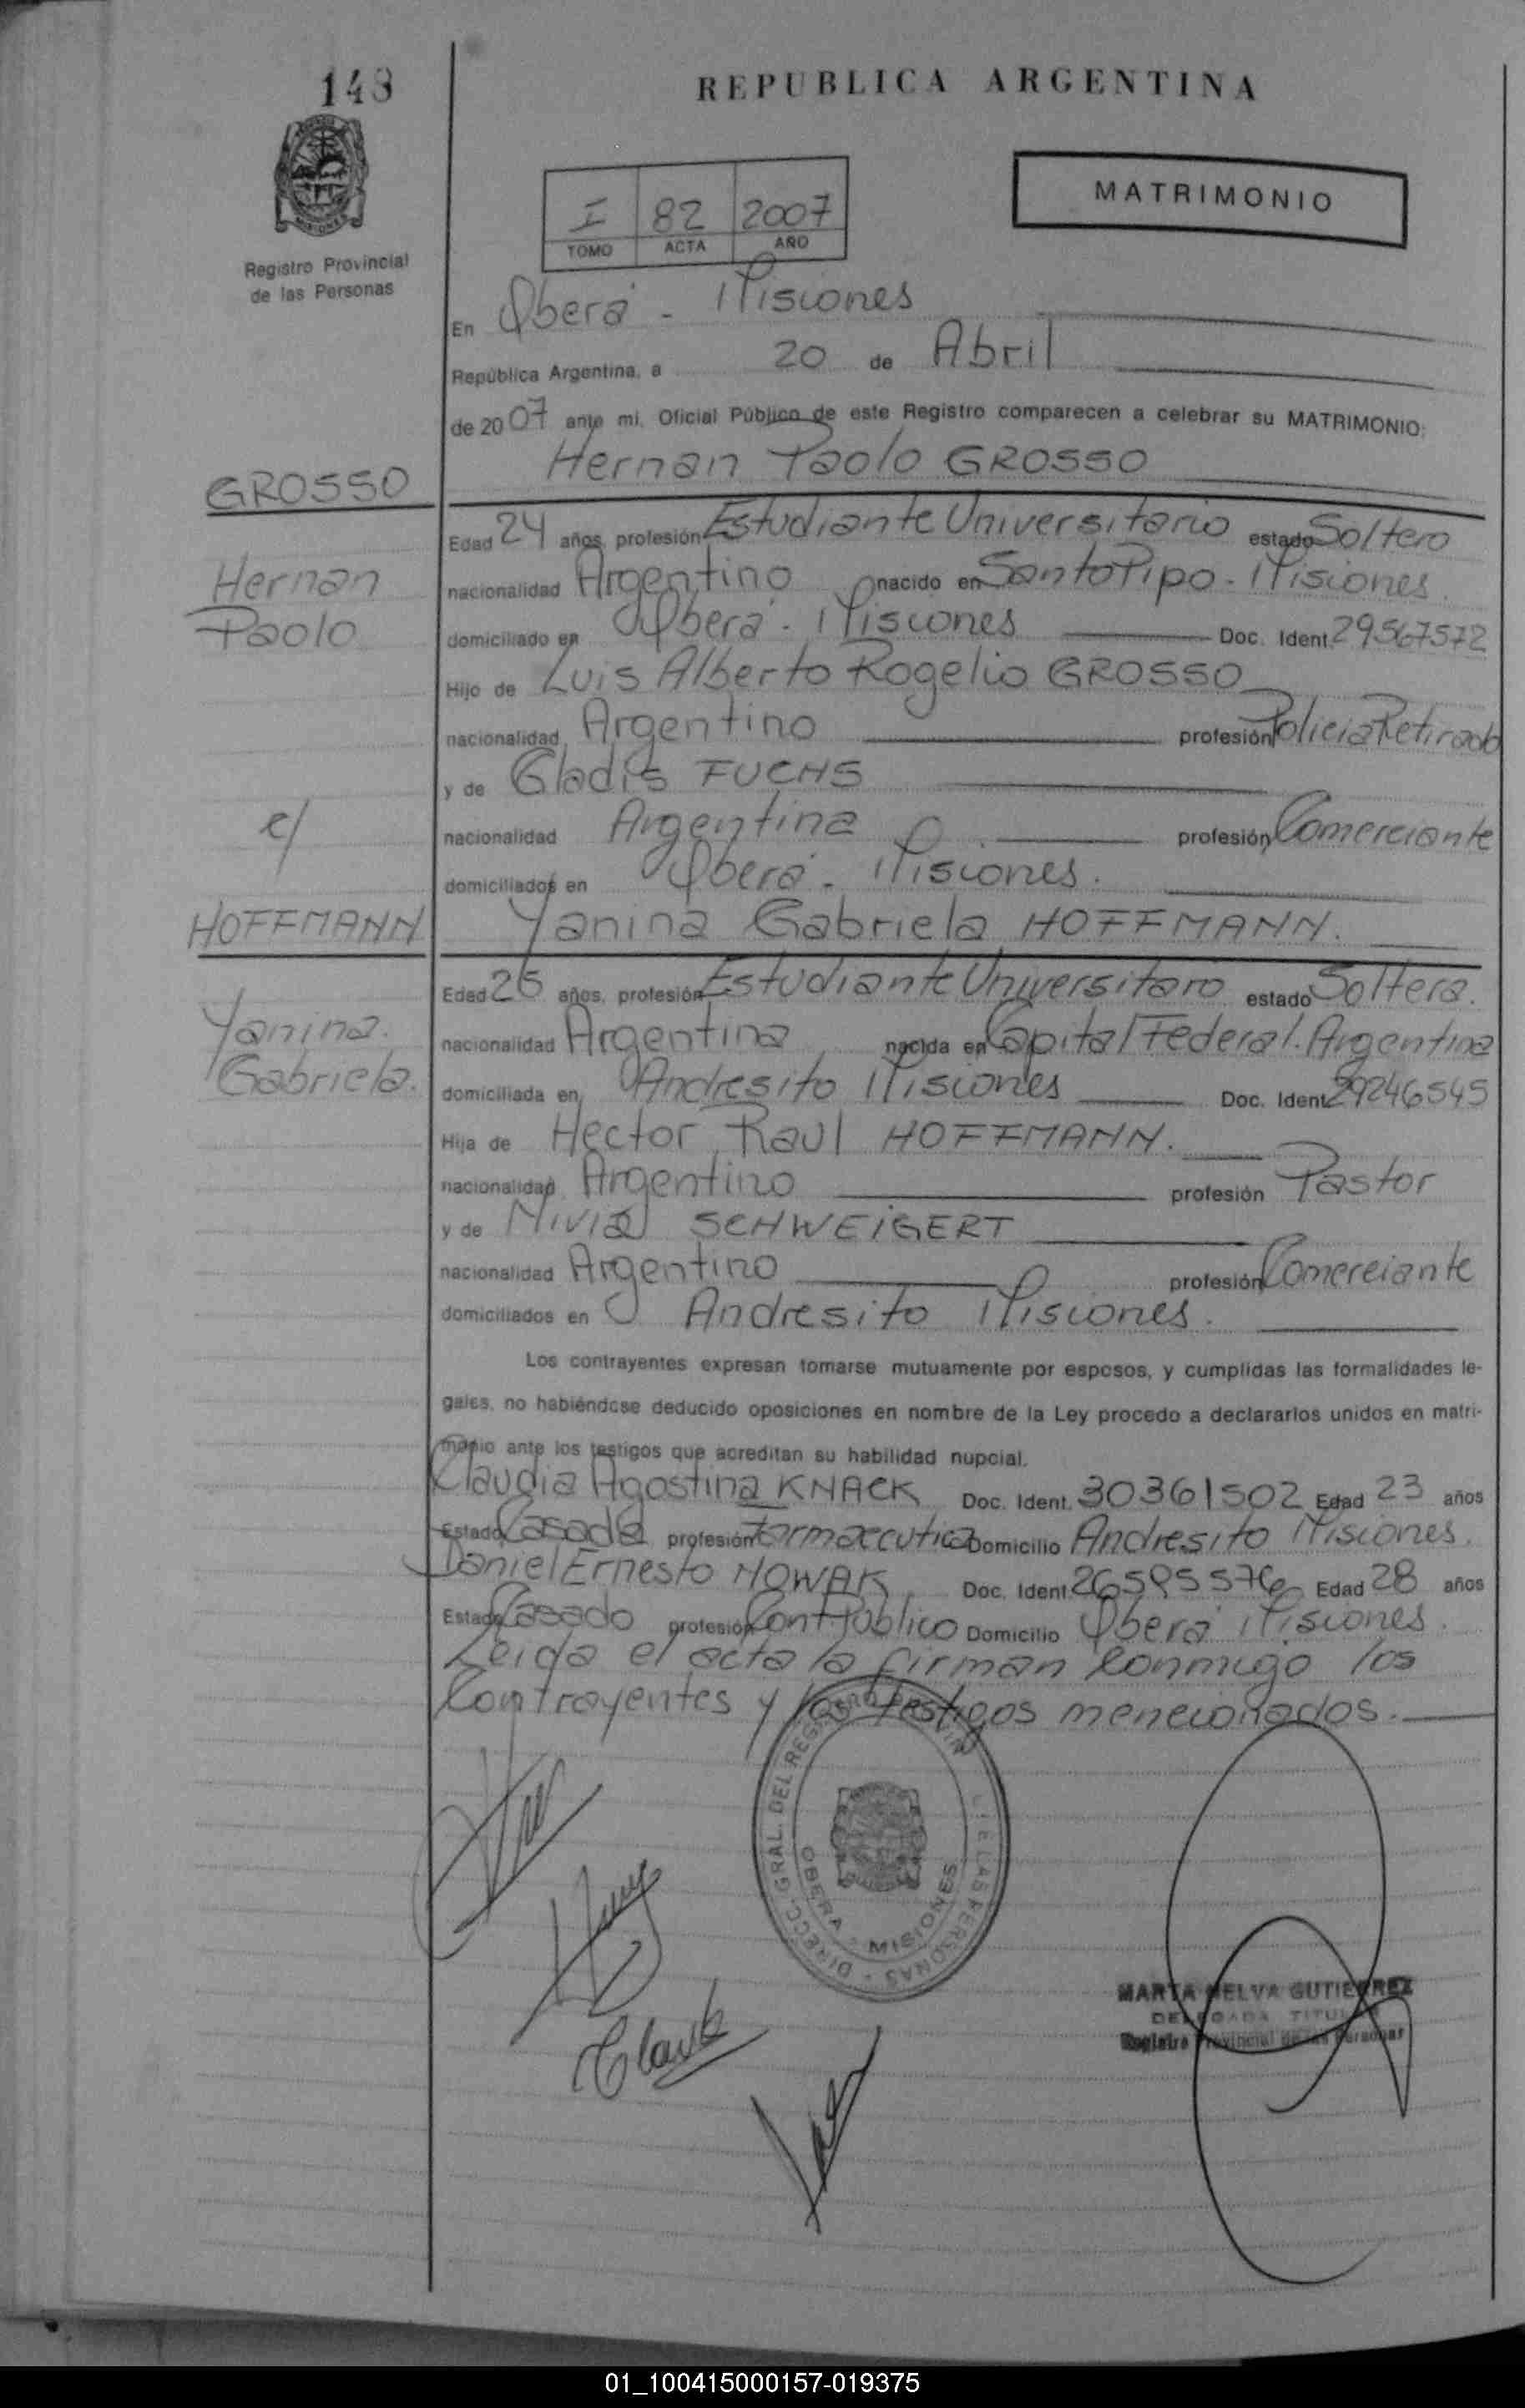 148
REPUBLICA ARGENTINA
I 82 2007
TOMO ACTA AÑO
MATRIMONIO
Registro Provincial
de las Personas
En Oberá - Misiones
República Argentina, a 20 de Abril
de 2007 ante mi, Oficial Público de este Registro comparecen a celebrar su MATRIMONIO:
Hernan Paolo GROSSO
GROSSO
Edad 24 años, profesión Estudiante Universitario estado Soltero
Hernan
nacionalidad Argentino nacido en Santo Pipo - Misiones
Paolo
domiciliado en Oberá - Misiones Doc. Ident. 29567572
Hijo de Luis Alberto Rogelio GROSSO
nacionalidad Argentino profesión Policia Retirado
y de Gladis FUCHS
c/
nacionalidad Argentina profesión Comerciante
domiciliados en Oberá - Misiones.
HOFFMANN
Yanina Gabriela HOFFMANN.
Edad 25 años, profesión Estudiante Universitaro estado Soltera.
Yanina.
nacionalidad Argentina nacida en Capital Federal. Argentina
Gabriela.
domiciliada en Andresito Misiones Doc. Ident. 29246545
Hija de Hector Raul HOFFMANN.
nacionalidad Argentino profesión Pastor
y de Nivia SCHWEIGERT
nacionalidad Argentino profesión Comerciante
domiciliados en Andresito Misiones.
Los contrayentes expresan tomarse mutuamente por esposos, y cumplidas las formalidades le-
gales, no habiéndose deducido oposiciones en nombre de la Ley procedo a declararlos unidos en matri-
monio ante los testigos que acreditan su habilidad nupcial.
Claudia Agostina KNACK Doc. Ident. 30361502 Edad 23 años
Estado Casada profesión Farmaceutica Domicilio Andresito Misiones.
Daniel Ernesto NOWAK Doc. Ident. 26595576 Edad 28 años
Estado Casado profesión Cont Público Domicilio Oberá Misiones.
Leida el acta la firman conmigo los
Contrayentes y los testigos mencionados.
DIRECC. GRAL. DEL REGISTRO DE LAS PERSONAS
OBERA - MISIONES
MARTA NELVA GUTIERREZ
DELEGADA TITULAR
Registro Provincial de las Personas
01_100415000157-019375